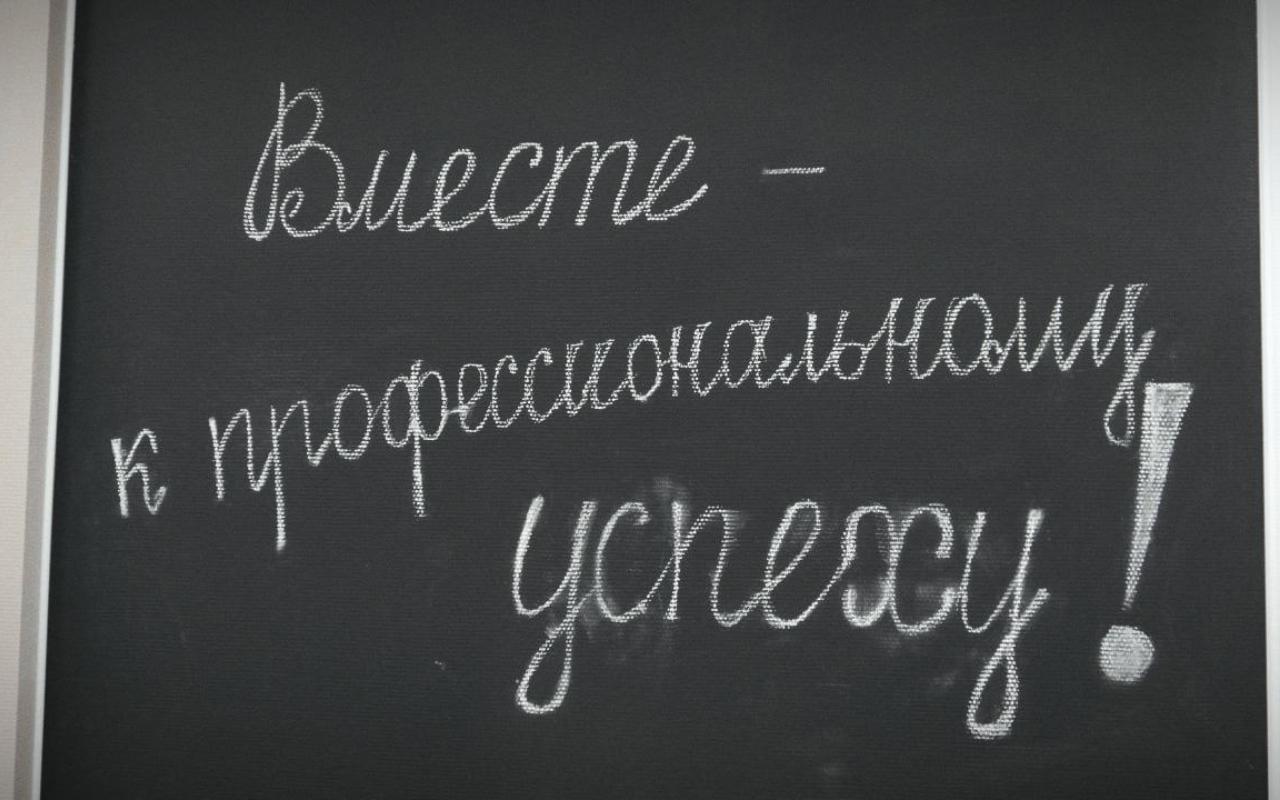 Вместе –
к профессиональному
успеху!